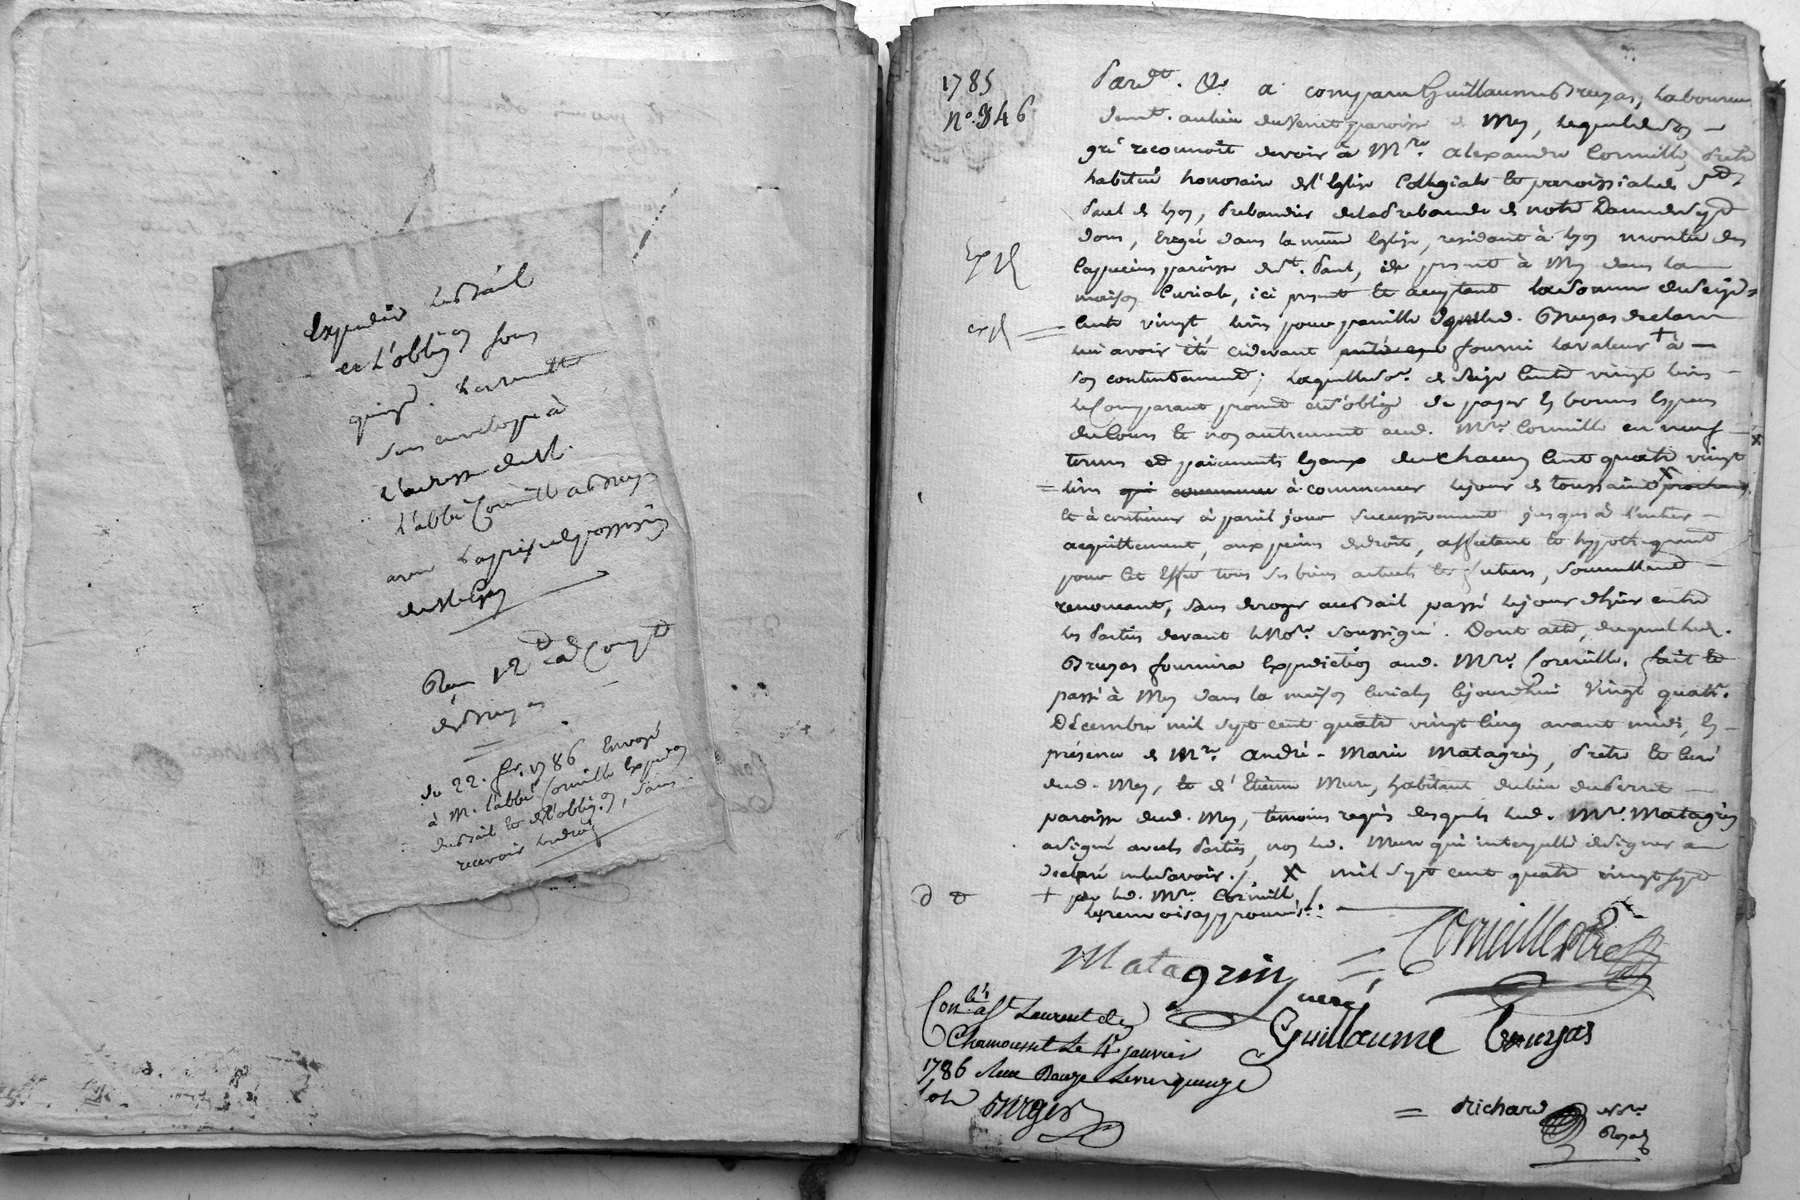 Expedier le Bail
et l'oblig.on sous
quinz.e
sous enveloppe à
l'adresse de M.
l'abbé Cornille
avec
de Mey
Reçu 12
de Bruyas
du 22. 1786 Envoyé
à M. l'abbé Cornille Exped.on
du Bail et de l'oblig.on, sans
recevoir
1785
N.o 346
Pard.t &c a comparu Guillaume Bruyas, Laboureur
dem.t au lieu du Verret paroisse de Mey, lequel de son
gré reconnoit devoir à M.re Alexandre Cornille, Pretre
habitué honoraire de l'Eglise Collegiale et paroissiale de S.t
Paul de Lyon, Prebandier de la Prebande de notre Dame de
dons, Erigée dans la même Eglise, residant à Lyon montée des
Capucins paroisse de S.t Paul, de present à Mey dans la
maison Curiale, ici present et acceptant la somme de Seize
Cents vingt livres pour pareille que led. Bruyas declare
lui avoir été cidevant fourni la valeur + à
son contentement; laquelle so.e de Seize Cents vingt livres
le Comparant promet et s'oblige de payer en bonnes Especes
de Cours et non autrement aud. M.re Cornille en neuf
termes et paiements Egaux de chacun Cent quatre vingt
livres qui commence à commencer le jour de toussaint X prochain
et à continuer à pareil jour successivement jusques à l'entier
acquittement, aux peines de droit, affectant et hypothequant
pour cet Effet tous ses biens actuels et futurs, soumettant
renoncant, sans deroger au Bail passé le jour d'hier entre
les Parties devant le No.re soussigné. Dont acte, duquel led.
Bruyas fournira Expedition aud. M.re Cornille. fait et
passé à Mey dans la maison Curiale, cejourdhui vingt quatre
Décembre mil sept cent quatre vingt cinq avant midi, En
présence de M.re André-Marie Matagrin, Pretre et Curé
dud. Mey, et d'Etienne Mure, habitant du lieu du Verret
paroisse dud. Mey, témoins requis desquels led. M.re Matagrin
a signé avec les Parties, non led. Mure qui interpellé de signer a
declaré ne le savoir./. X mil sept cent quatre vingt sept
+ par led. M.re Cornille /
les renvois approuvés:
Expé
expé
Cornille Ptre
Matagrin curé
Guillaume bruyas
Con.lé à S.t Laurent de
Chamousset Le 4 janvier
1786 Reçu Douze Livres quinze
sols
= Richard No.re
Royal